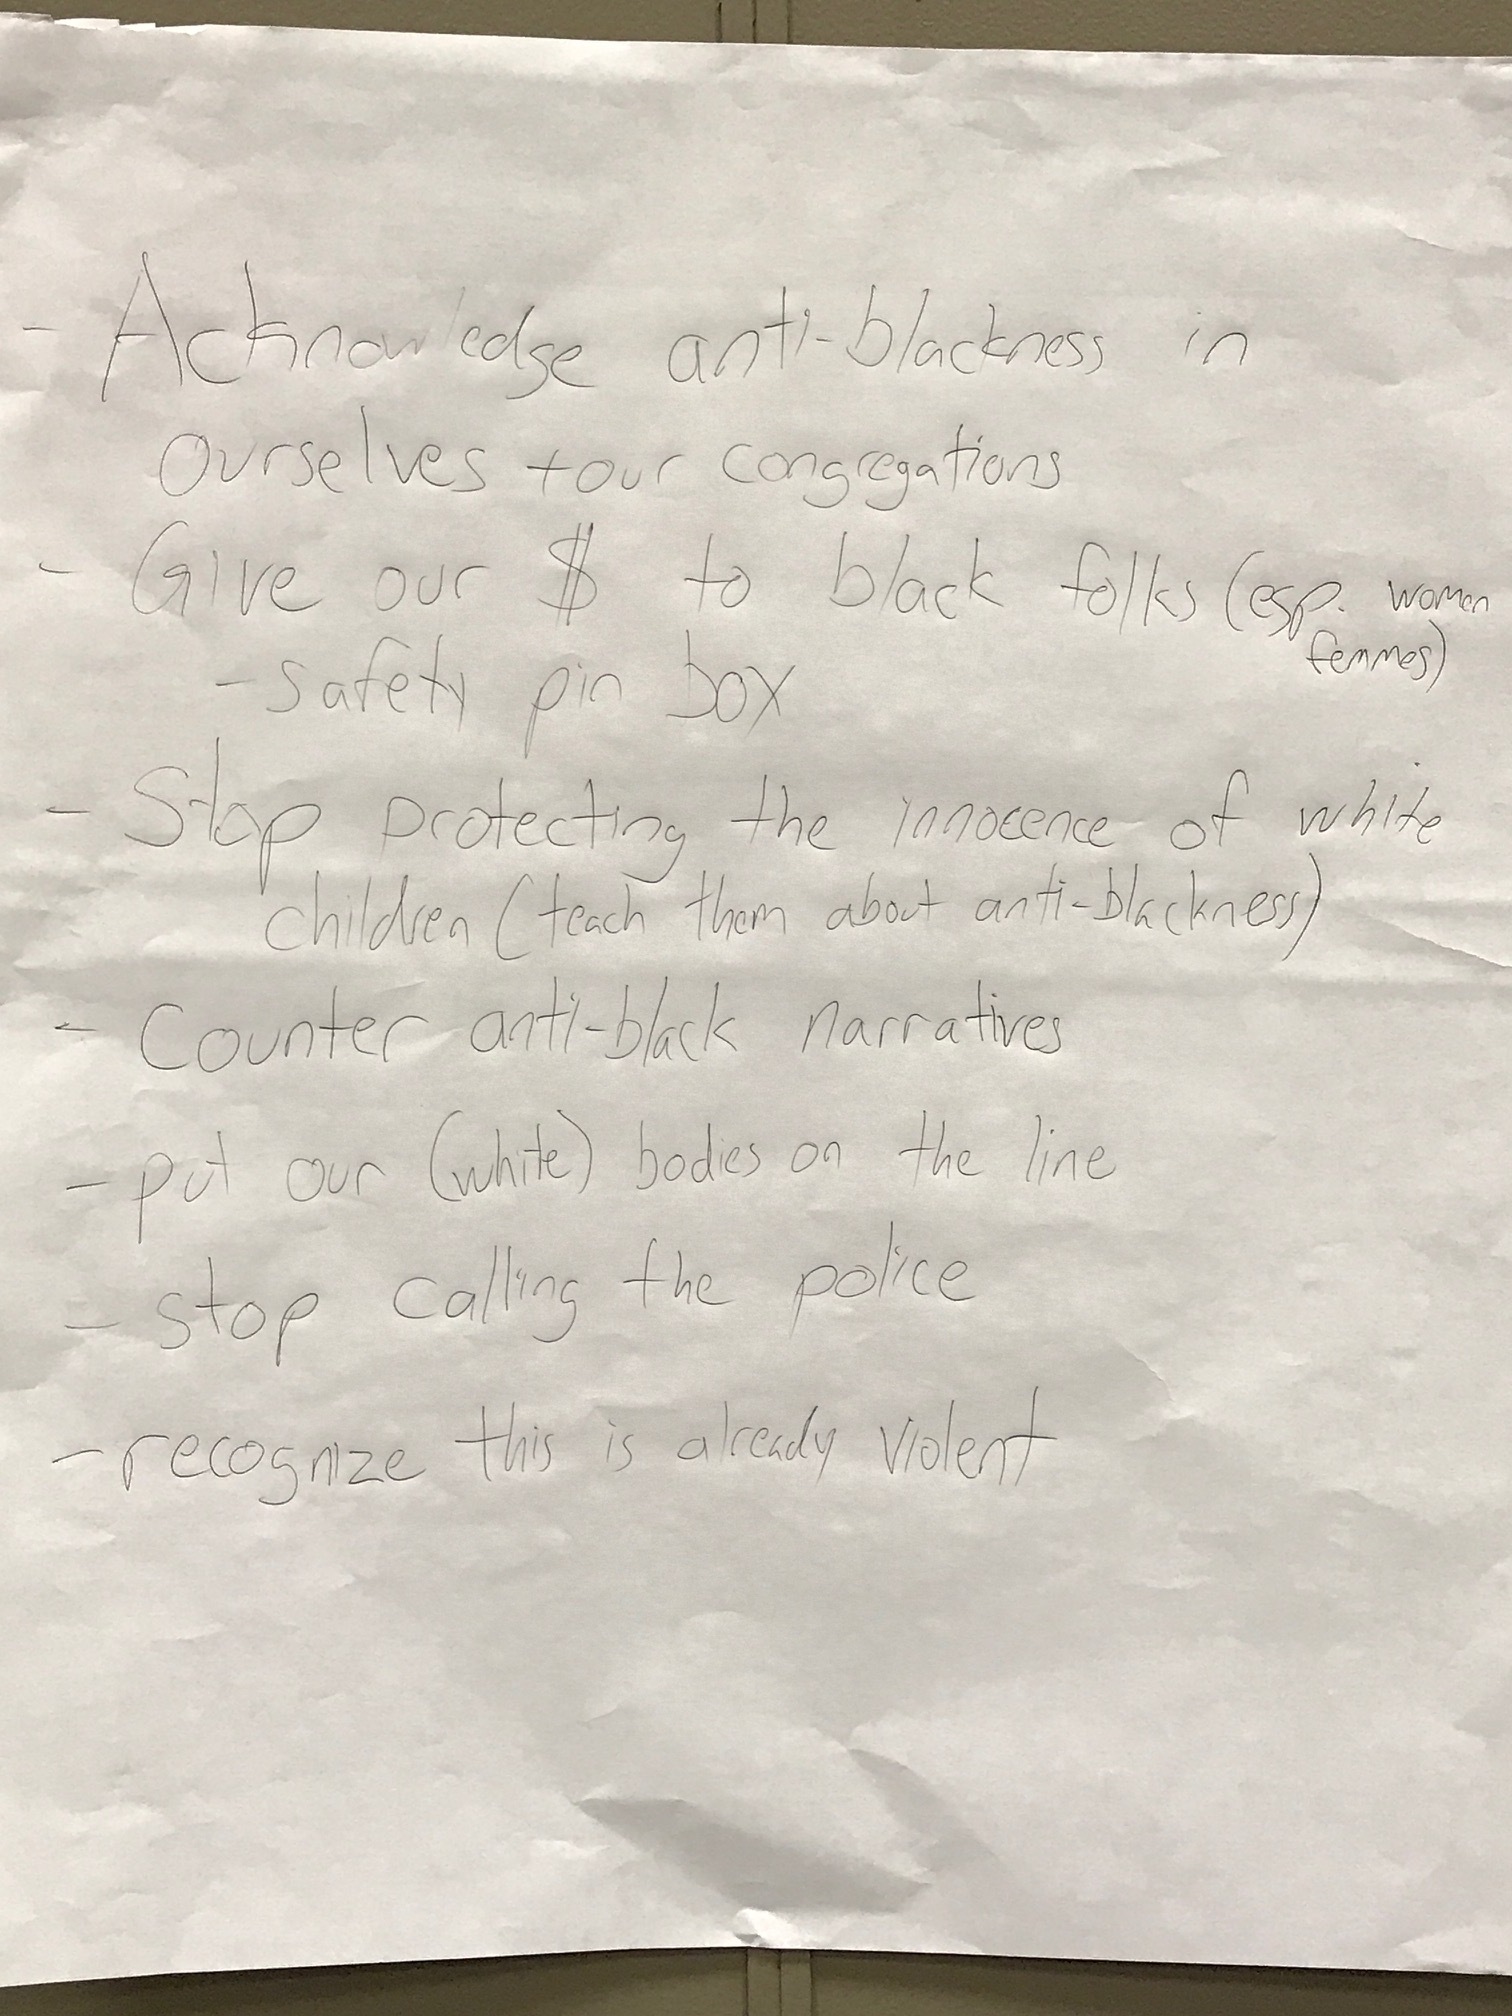 - Acknowledge anti-blackness in
ourselves + our congregations
- Give our $ to black folks (esp. women
femmes)
- safety pin box
- Stop protecting the innocence of white
children (teach them about anti-blackness)
- Counter anti-black narratives
- put our (white) bodies on the line
- stop calling the police
- recognize this is already violent